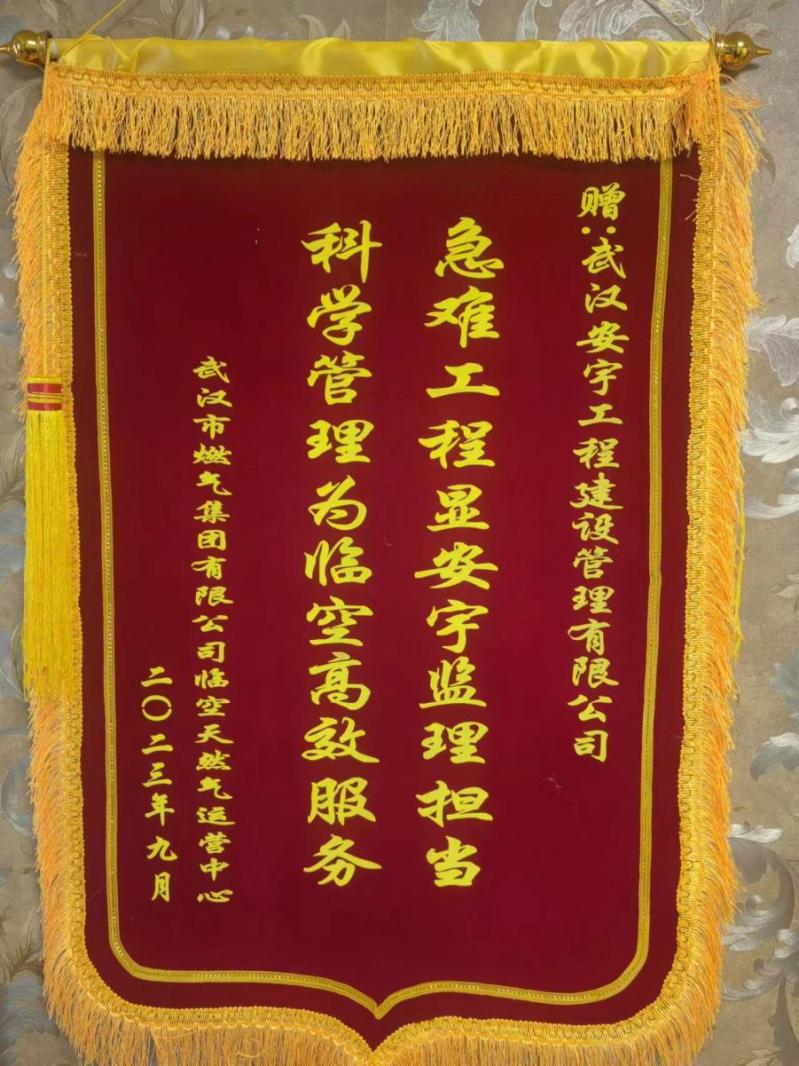 赠:武汉安宇工程建设管理有限公司
急难工程显安宇监理担当
科学管理为临空高效服务
武汉市燃气集团有限公司临空天然气运营中心
二〇二三年九月